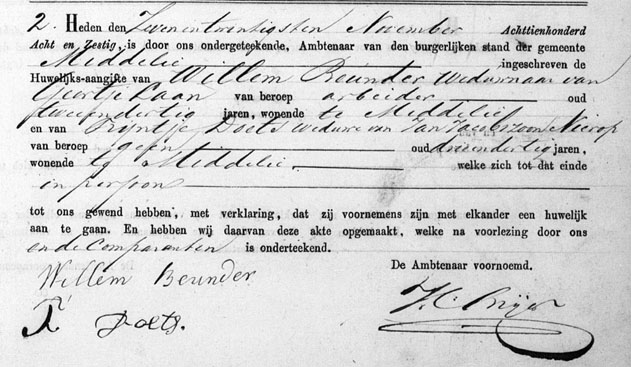 2. Heden den Zevenentwintigsten November Achttienhonderd
Acht en Zestig, is door ons ondergeteekende, Ambtenaar van den burgerlijken stand der gemeente
Middelie ingeschreven de
Huwelijks-aangifte van Willem Beunder Weduwnaar van
Geertje Laan van beroep arbeider oud
tweeendertig jaren, wonende te Middelie
en van Trijntje Doets Weduwe van Jan Jacobszoon Nierop
van beroep geen oud drieendertig jaren,
wonende te Middelie. welke zich tot dat einde
in persoon
tot ons gewend hebben, met verklaring, dat zij voornemens zijn met elkander een huwelijk
aan te gaan. En hebben wij daarvan deze akte opgemaakt, welke na voorlezing door ons
en de Comparanten is onderteekend.
De Ambtenaar voornoemd.
Willem Beunder
T Doets.